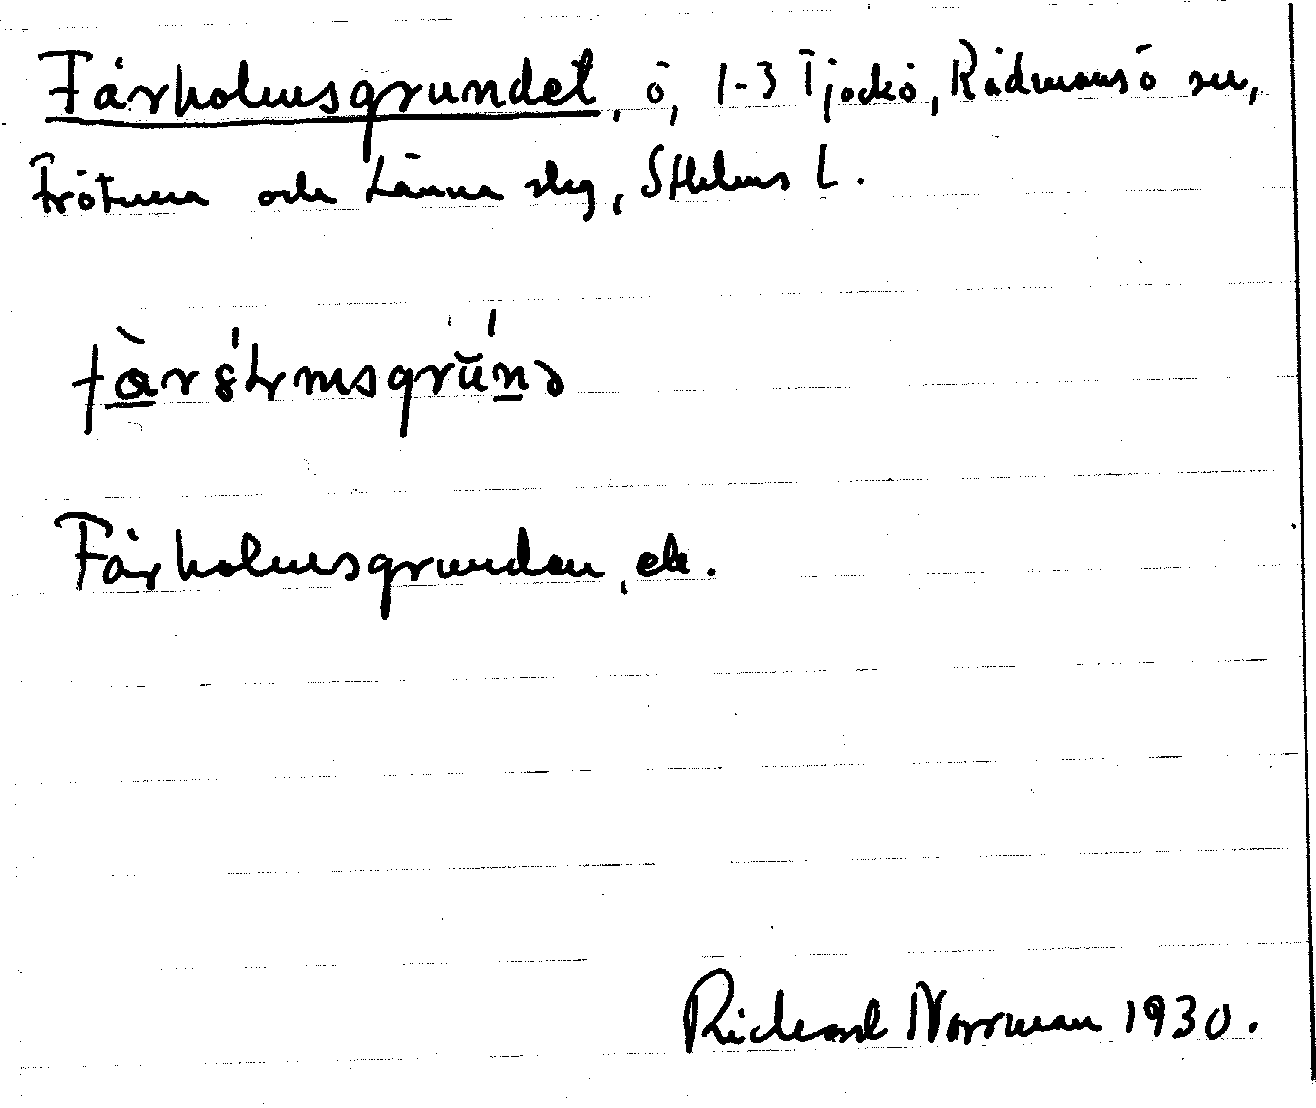 Fårholmsgrundet, ö, 1-3 Tjockö, Rådmansö sn,
Frötuna och Länna skg, Sthlms L.
Fårholmsgrunden, ek.
Richard Norrman 1930.